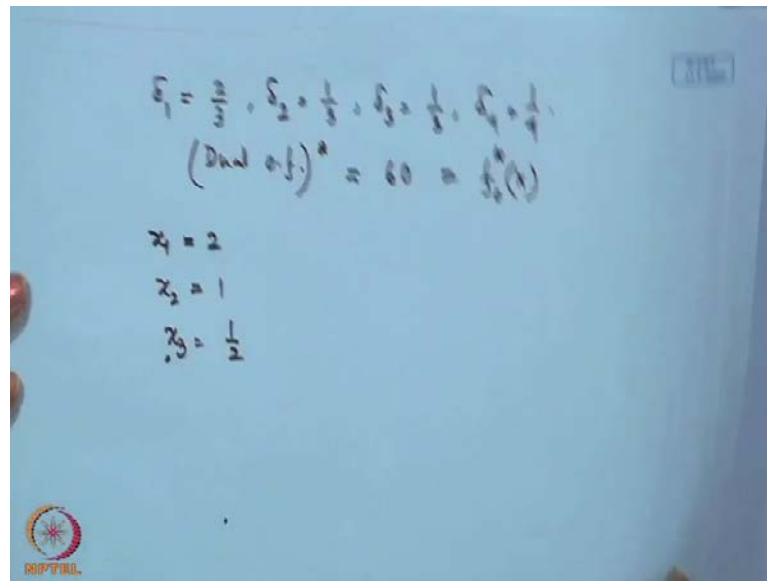 δ₁ = 2/3, δ₂ = 1/3, δ₃ = 1/3, δ₄ = 1/4.
(Dual o.f.)* = 60 = f₀*(x)
x₁ = 2
x₂ = 1
x₃ = 1/2
NPTEL